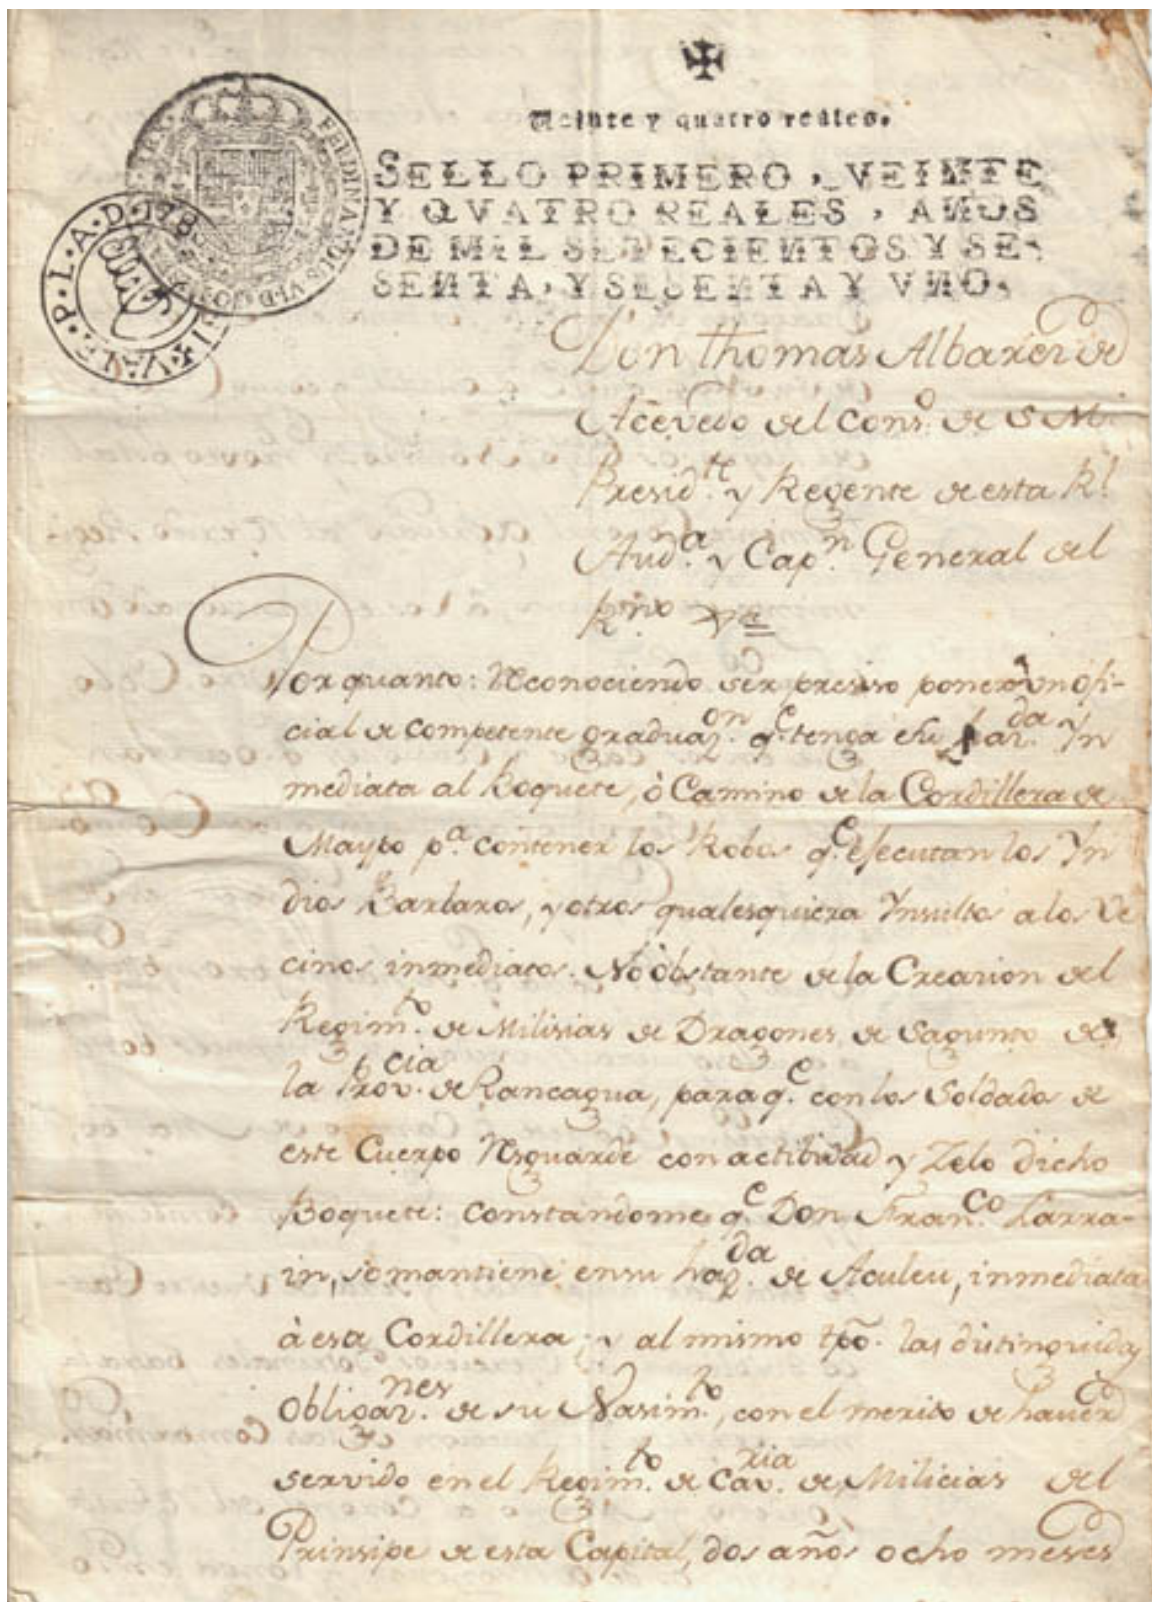 Veinte y quatro reales.
SELLO PRIMERO, VEINTE
Y QVATRO REALES, AÑOS
DE MIL SETECIENTOS Y SE-
SENTA, Y SESENTA Y VNO.
FERDINANDUS VI D G
VALE P L A D 178
Don Thomas Albarez de
Acevedo del Cons.o de S M.
Presid.te y Regente de esta Rl.
Aud.a y Cap.n General del
R.no
Por quanto: Reconociendo ser presiso poner un ofi-
cial de competente graduaz.on q.e tenga su az.da Yn
mediata al Boquete, ò Camino de la Cordillera de
Maypo p.a contener los Robos q.e ejecutan los Yn
dios Barbaros, y otros qualesquiera Ynsultos a los Ve
cinos inmediatos. No obstante de la Creazion del
Regim.to de Milisias de Dragones de Sagunto de
la Prov.cia de Rancagua, para q.e con los Soldados de
este Cuerpo Resguarde con actibidad y Zelo dicho
Boquete: constandome q.e Don Fran.co Larra-
in, se mantiene en su haz.da de Aculeu, inmediata
à esta Cordillera, y al mismo tpõ. las distinguidas
Obligaz.nes de su Nasim.to, con el merito de haver
servido en el Regim.to de Cav.ria de Milicias del
Prinsipe de esta Capital, dos años ocho meses